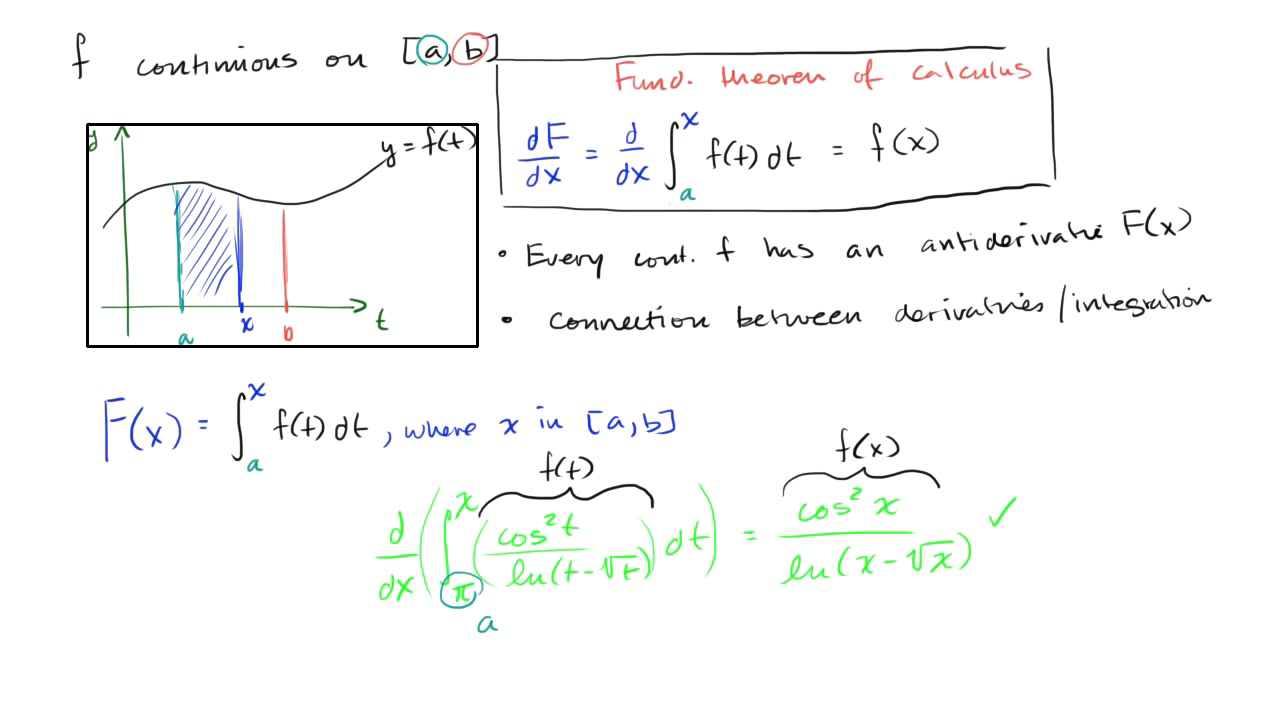 f continuous on [a, b]
Fund. theorem of calculus
dF/dx = d/dx ∫_a^x f(t) dt = f(x)
y
y = f(t)
a x b
t
• Every cont. f has an antiderivative F(x)
• connection between derivatives / integration
F(x) = ∫_a^x f(t) dt, where x in [a, b]
f(t) f(x)
d/dx (∫_π^x (cos²t / ln(t-√t)) dt) = cos²x / ln(x-√x) ✓
a